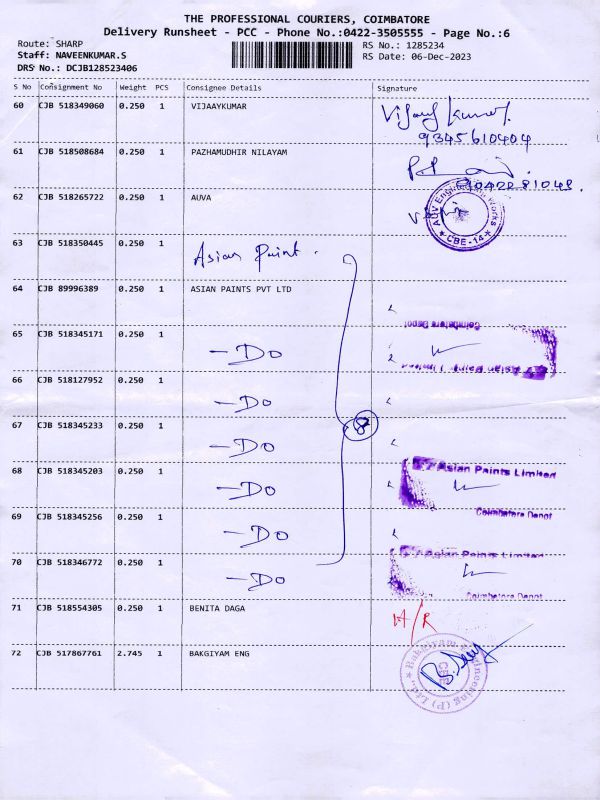 THE PROFESSIONAL COURIERS, COIMBATORE
Delivery Runsheet - PCC - Phone No.:0422-3505555 - Page No.:6
Route: SHARP
RS No.: 1285234
Staff: NAVEENKUMAR.S
RS Date: 06-Dec-2023
DRS No.: DCJB128523406
S No Consignment No Weight PCS Consignee Details Signature
60 CJB 518349060 0.250 1 VIJAAYKUMAR
9345610404
61 CJB 518508684 0.250 1 PAZHAMUDHIR NILAYAM
62 CJB 518265722 0.250 1 AUVA
CBE-14
63 CJB 518350445 0.250 1 Asian Paint.
64 CJB 89996389 0.250 1 ASIAN PAINTS PVT LTD
Coimbatore Depot
65 CJB 518345171 0.250 1 -DO
66 CJB 518127952 0.250 1 -DO
67 CJB 518345233 0.250 1 -DO
8
68 CJB 518345203 0.250 1 -DO
Asian Paints Limited
Coimbatore Depot
69 CJB 518345256 0.250 1 -DO
70 CJB 518346772 0.250 1 -DO
Asian Paints Limited
Coimbatore Depot
71 CJB 518554305 0.250 1 BENITA DAGA
72 CJB 517867761 2.745 1 BAKGIYAM ENG